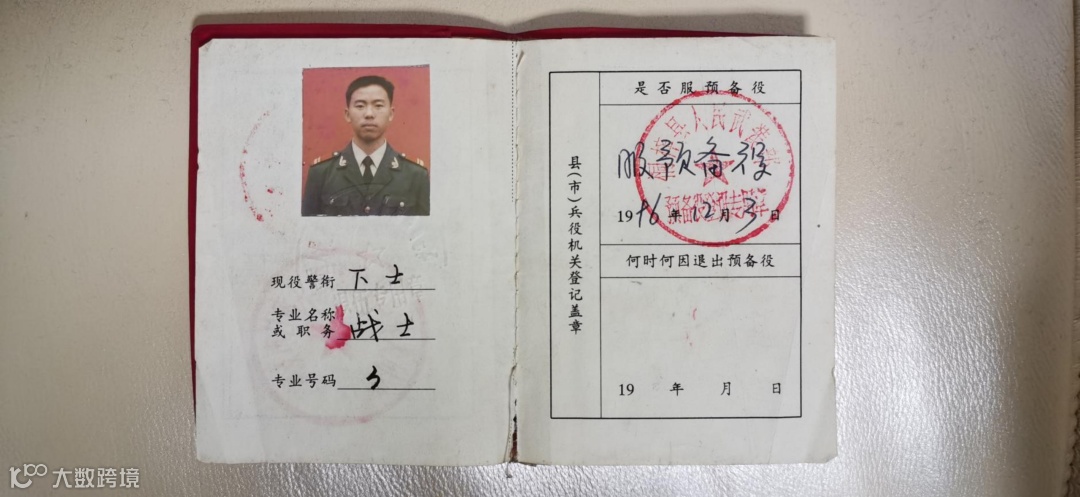 现役警衔 下士
专业名称
或职务 战士
专业号码 3
县(市)兵役机关登记盖章
是否服预备役
县人民武装部
服预备役
预备役登记专用章
1996年12月3日
何时何因退出预备役
19 年 月 日
大数跨境